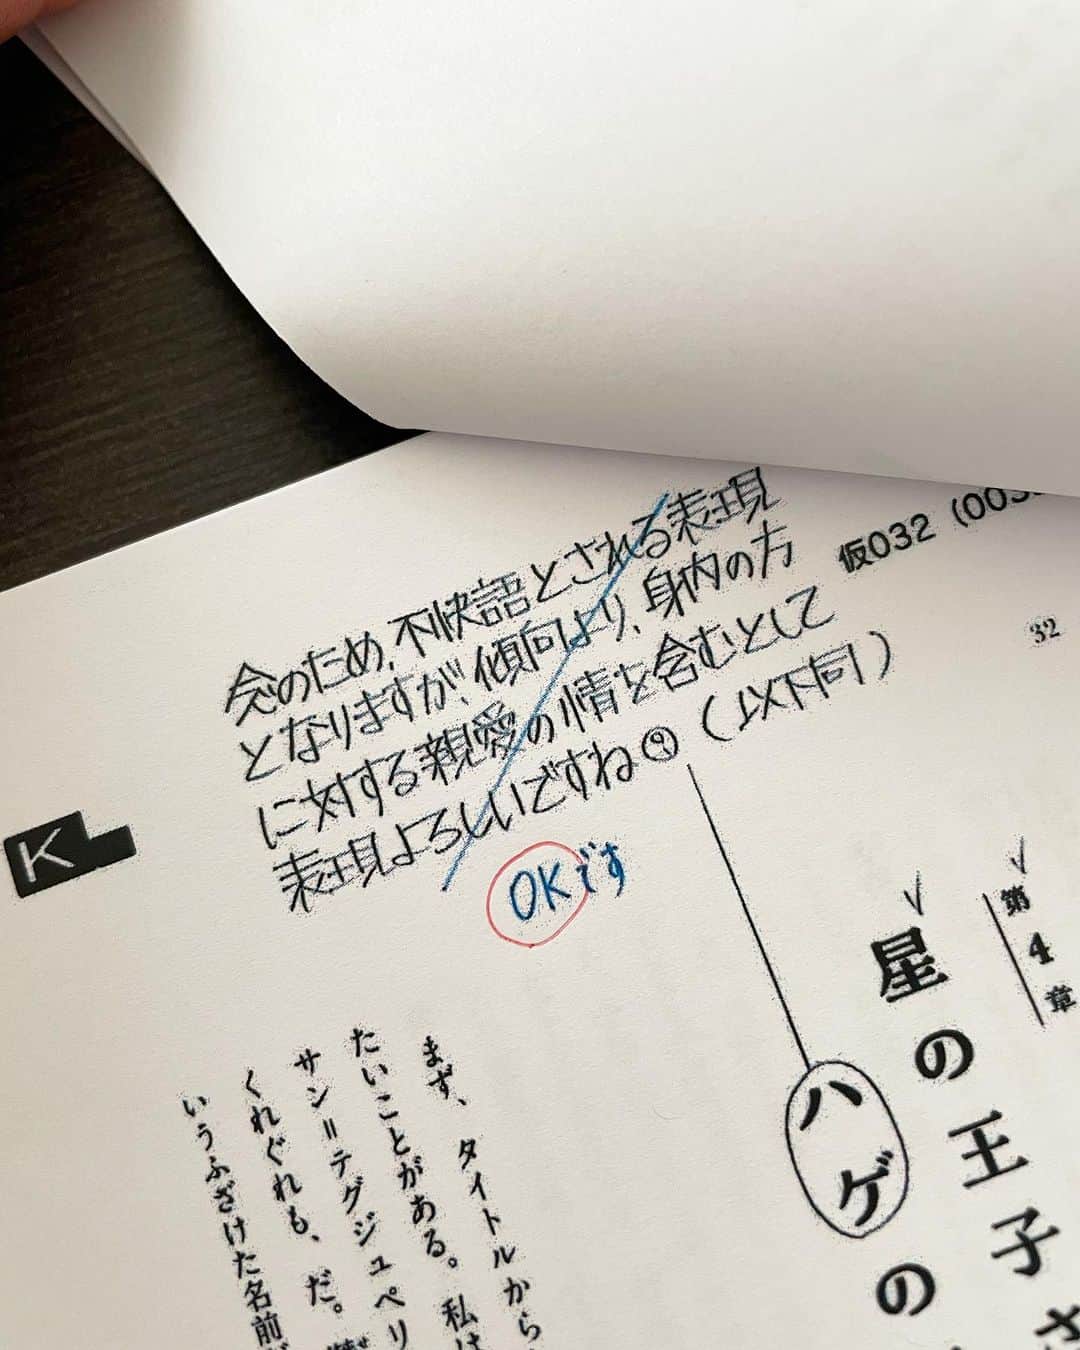 仮032
32
念のため、不快語とされる表現
となりますが、傾向より、身内の方
に対する親愛の情を含むとして
表現よろしいですね？（以下同）
OKです
K
第4章
星の王子さ
ハゲの
まず、タイトルから
たいことがある。私は
サン＝テグジュペリ
くれぐれも、だ。
いうふざけた名前